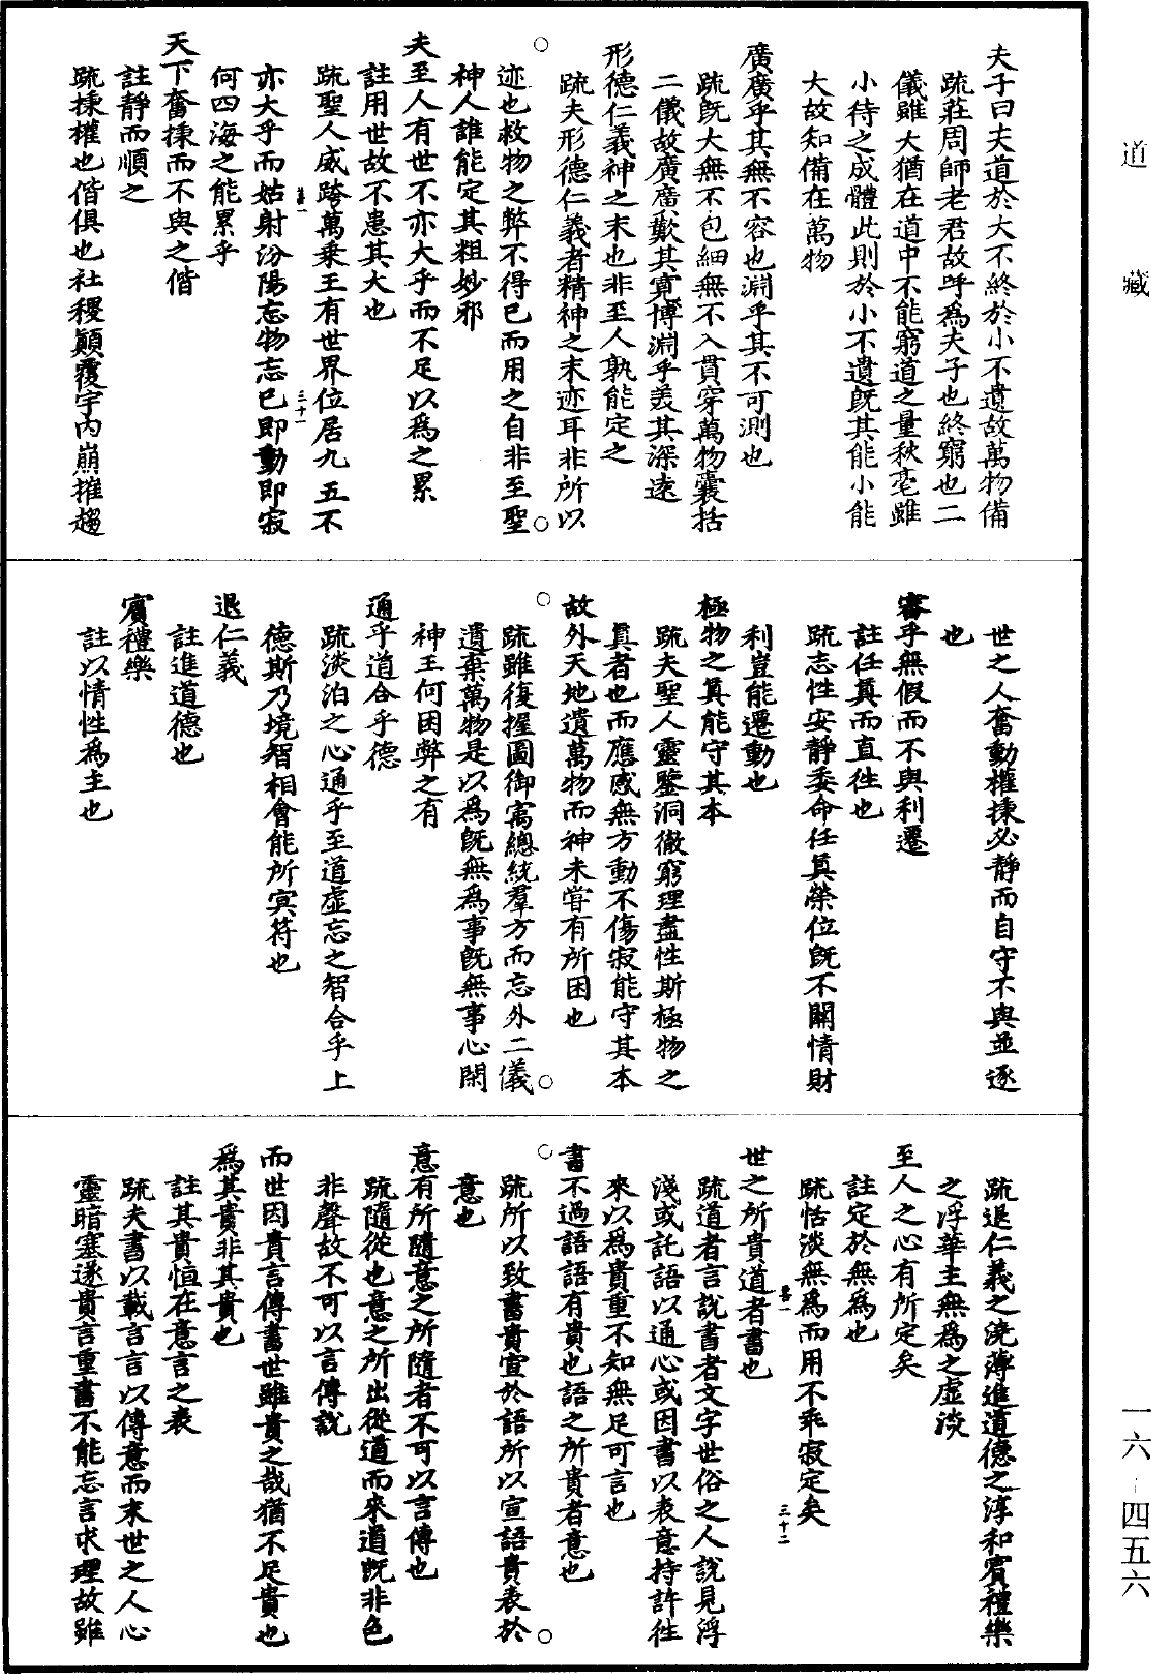 道藏
一六-四五六
夫子曰夫道於大不終於小不遺故萬物備
疏莊周師老君故呼爲夫子也終窮也二
儀雖大猶在道中不能窮道之量秋毫雖
小待之成體此則於小不遺旣其能小能
大故知備在萬物
廣廣乎其無不容也淵乎其不可測也
疏旣大無不包細無不入貫穿萬物囊括
二儀故廣廣歎其寬博淵乎羙其深遠
形德仁義神之末也非至人孰能定之
疏夫形德仁義者精神之末迹耳非所以
迹也救物之弊不得已而用之自非至聖
神人誰能定其粗妙邪
夫至人有世不亦大乎而不足以爲之累
註用世故不患其大也
疏聖人威跨萬乗王有世界位居九五不
亦大乎而姑射汾陽忘物忘己即動即寂
何四海之能累乎
天下奮揀而不與之偕
註靜而順之
疏揀權也偕俱也社稷顛覆宇内崩摧趨
世之人奮動權揀必靜而自守不與並逐
也
審乎無假而不與利遷
註任眞而直往也
疏志性安靜委命任眞榮位旣不關情財
利豈能遷動也
極物之眞能守其本
疏夫聖人靈鑒洞徹窮理盡性斯極物之
眞者也而應感無方動不傷寂能守其本
故外天地遺萬物而神未嘗有所困也
疏雖復握圖御寓總統羣方而忘外二儀
遺棄萬物是以爲旣無爲事旣無事心閑
神王何困弊之有
通乎道合乎德
疏淡泊之心通乎至道虛忘之智合乎上
德斯乃境智相會能所冥符也
退仁義
註進道德也
賓禮樂
註以情性爲主也
疏退仁義之澆薄進道德之淳和賓禮樂
之浮華主無爲之虛淡
至人之心有所定矣
註定於無爲也
疏恬淡無爲而用不乖寂定矣
世之所貴道者書也
疏道者言說書者文字世俗之人說見浮
淺或託語以通心或因書以表意持許往
來以爲貴重不知無足可言也
書不過語語有貴也語之所貴者意也
疏所以致書貴宣於語所以宣語貴表於
意也
意有所隨意之所隨者不可以言傳也
疏隨從也意之所出從道而來道旣非色
非聲故不可以言傳說
而世因貴言傳書世雖貴之哉猶不足貴也
爲其貴非其貴也
註其貴恒在意言之表
疏夫書以載言言以傳意而末世之人心
靈暗塞遂貴言重書不能忘言求理故雖
三十一
三十二